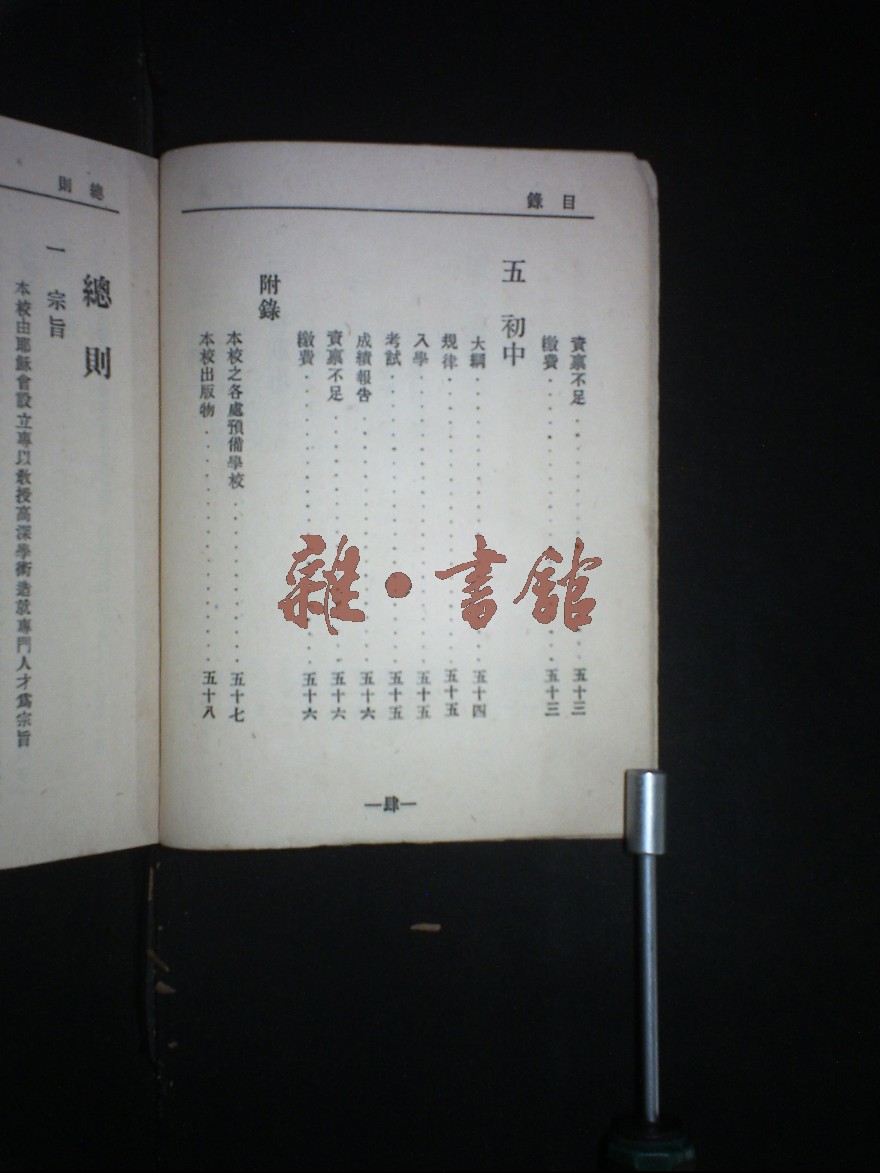 目錄
資稟不足 五十三
繳費 五十三
五 初中
大綱 五十四
規律 五十五
入學 五十五
考試 五十五
成績報告 五十六
資稟不足 五十六
繳費 五十六
附錄
本校之各處預備學校 五十七
本校出版物 五十八
—肆—
總則
總則
一 宗旨
本校由耶穌會設立專以敎授高深學術造就專門人才爲宗旨
雜·書館